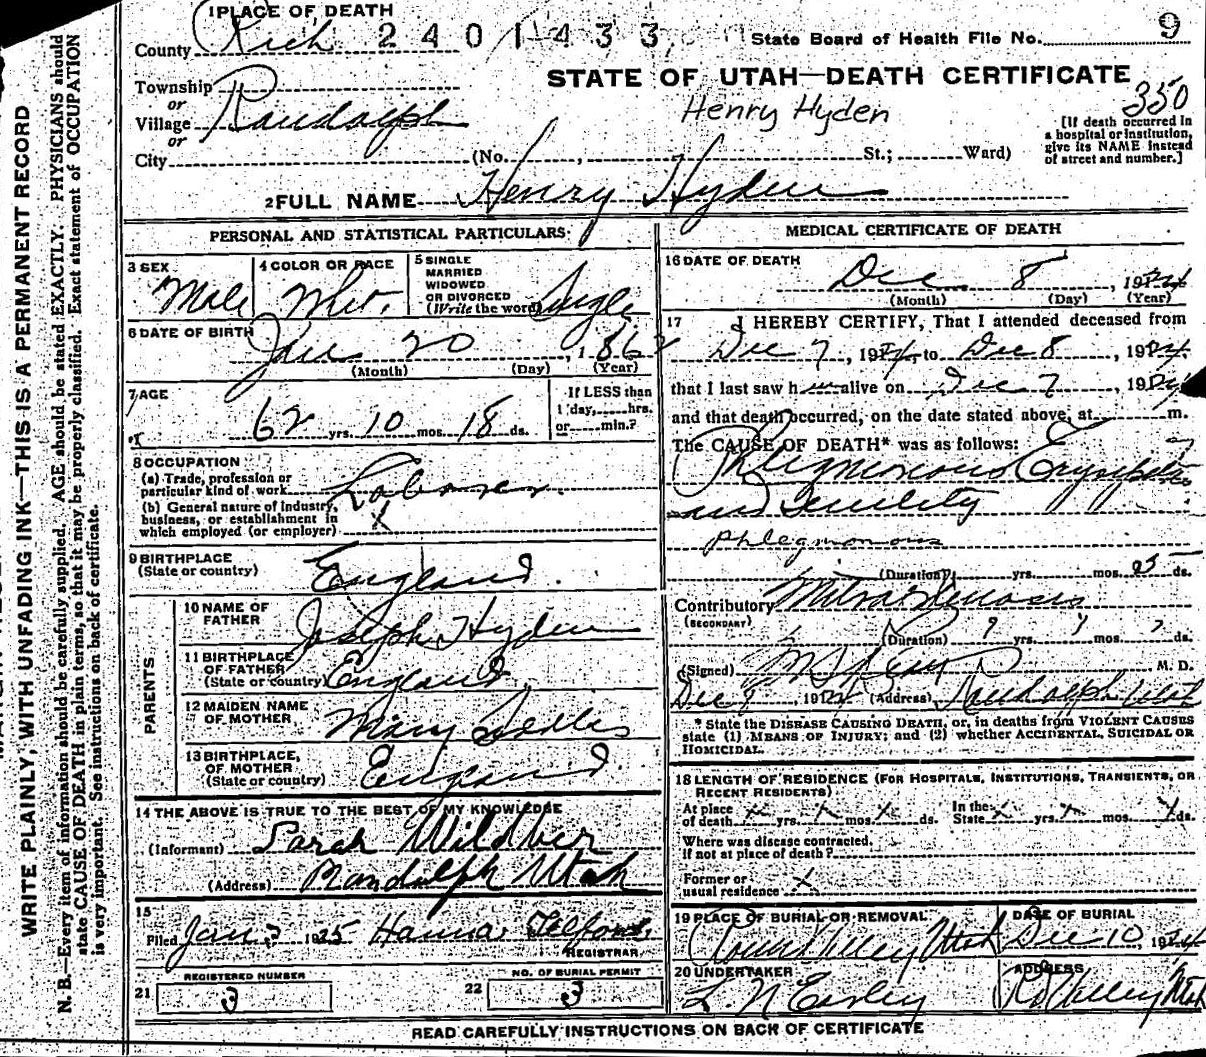 1 PLACE OF DEATH
County Rich 2401433 State Board of Health File No. 9
STATE OF UTAH—DEATH CERTIFICATE
Township
or
Village Randolph Henry Hyden 350
or
City (No. , St.; Ward)
[If death occurred in
a hospital or institution,
give its NAME instead
of street and number.]
2 FULL NAME Henry Hyden
PERSONAL AND STATISTICAL PARTICULARS
3 SEX Male
4 COLOR OR RACE Whit.
5 SINGLE
MARRIED
WIDOWED
OR DIVORCED
(Write the word) Single
6 DATE OF BIRTH
Jan 20, 1862
(Month) (Day) (Year)
7 AGE
62 yrs. 10 mos. 18 ds.
If LESS than
1 day, hrs.
or min.?
8 OCCUPATION
(a) Trade, profession or
particular kind of work Laborer.
(b) General nature of industry,
business, or establishment in
which employed (or employer) X
9 BIRTHPLACE
(State or country) England.
PARENTS
10 NAME OF
FATHER Joseph Hyden
11 BIRTHPLACE
OF FATHER
(State or country) England.
12 MAIDEN NAME
OF MOTHER Mary
13 BIRTHPLACE,
OF MOTHER
(State or country) England.
14 THE ABOVE IS TRUE TO THE BEST OF MY KNOWLEDGE
(Informant) Sarah
(Address) Randolph Utah
15
Filed Jan 3 1925 Hanna Telford.
REGISTRAR
REGISTERED NUMBER
21 3
NO. OF BURIAL PERMIT
22 3
MEDICAL CERTIFICATE OF DEATH
16 DATE OF DEATH
Dec 8, 1924
(Month) (Day) (Year)
17 I HEREBY CERTIFY, That I attended deceased from
Dec 7, 1924, to Dec 8, 1924.
that I last saw him alive on Dec 7, 1924
and that death occurred, on the date stated above, at m.
The CAUSE OF DEATH* was as follows:
Phlegmonous Erysipelas
and Senility
Phlegmonous
(Duration) yrs. mos. ds.
Contributory Mitral Stenosis
(SECONDARY)
(Duration) ? yrs. ? mos. ? ds.
(Signed) M. D.
Dec 8, 1924 (Address) Randolph Utah
* State the DISEASE CAUSING DEATH, or, in deaths from VIOLENT CAUSES
state (1) MEANS OF INJURY; and (2) whether ACCIDENTAL, SUICIDAL OR
HOMICIDAL.
18 LENGTH OF RESIDENCE (FOR HOSPITALS, INSTITUTIONS, TRANSIENTS, OR
RECENT RESIDENTS)
At place
of death X yrs. X mos. X ds.
In the
State X yrs. X mos. X ds.
Where was disease contracted,
if not at place of death?
Former or
usual residence X
19 PLACE OF BURIAL OR REMOVAL
Round Valley Utah
DATE OF BURIAL
Dec 10, 1924
20 UNDERTAKER
L. N.
ADDRESS
Rd Valley Utah
READ CAREFULLY INSTRUCTIONS ON BACK OF CERTIFICATE
WRITE PLAINLY, WITH UNFADING INK—THIS IS A PERMANENT RECORD
N. B.—Every item of information should be carefully supplied. AGE should be stated EXACTLY. PHYSICIANS should
state CAUSE OF DEATH in plain terms, so that it may be properly classified. Exact statement of OCCUPATION
is very important. See instructions on back of certificate.